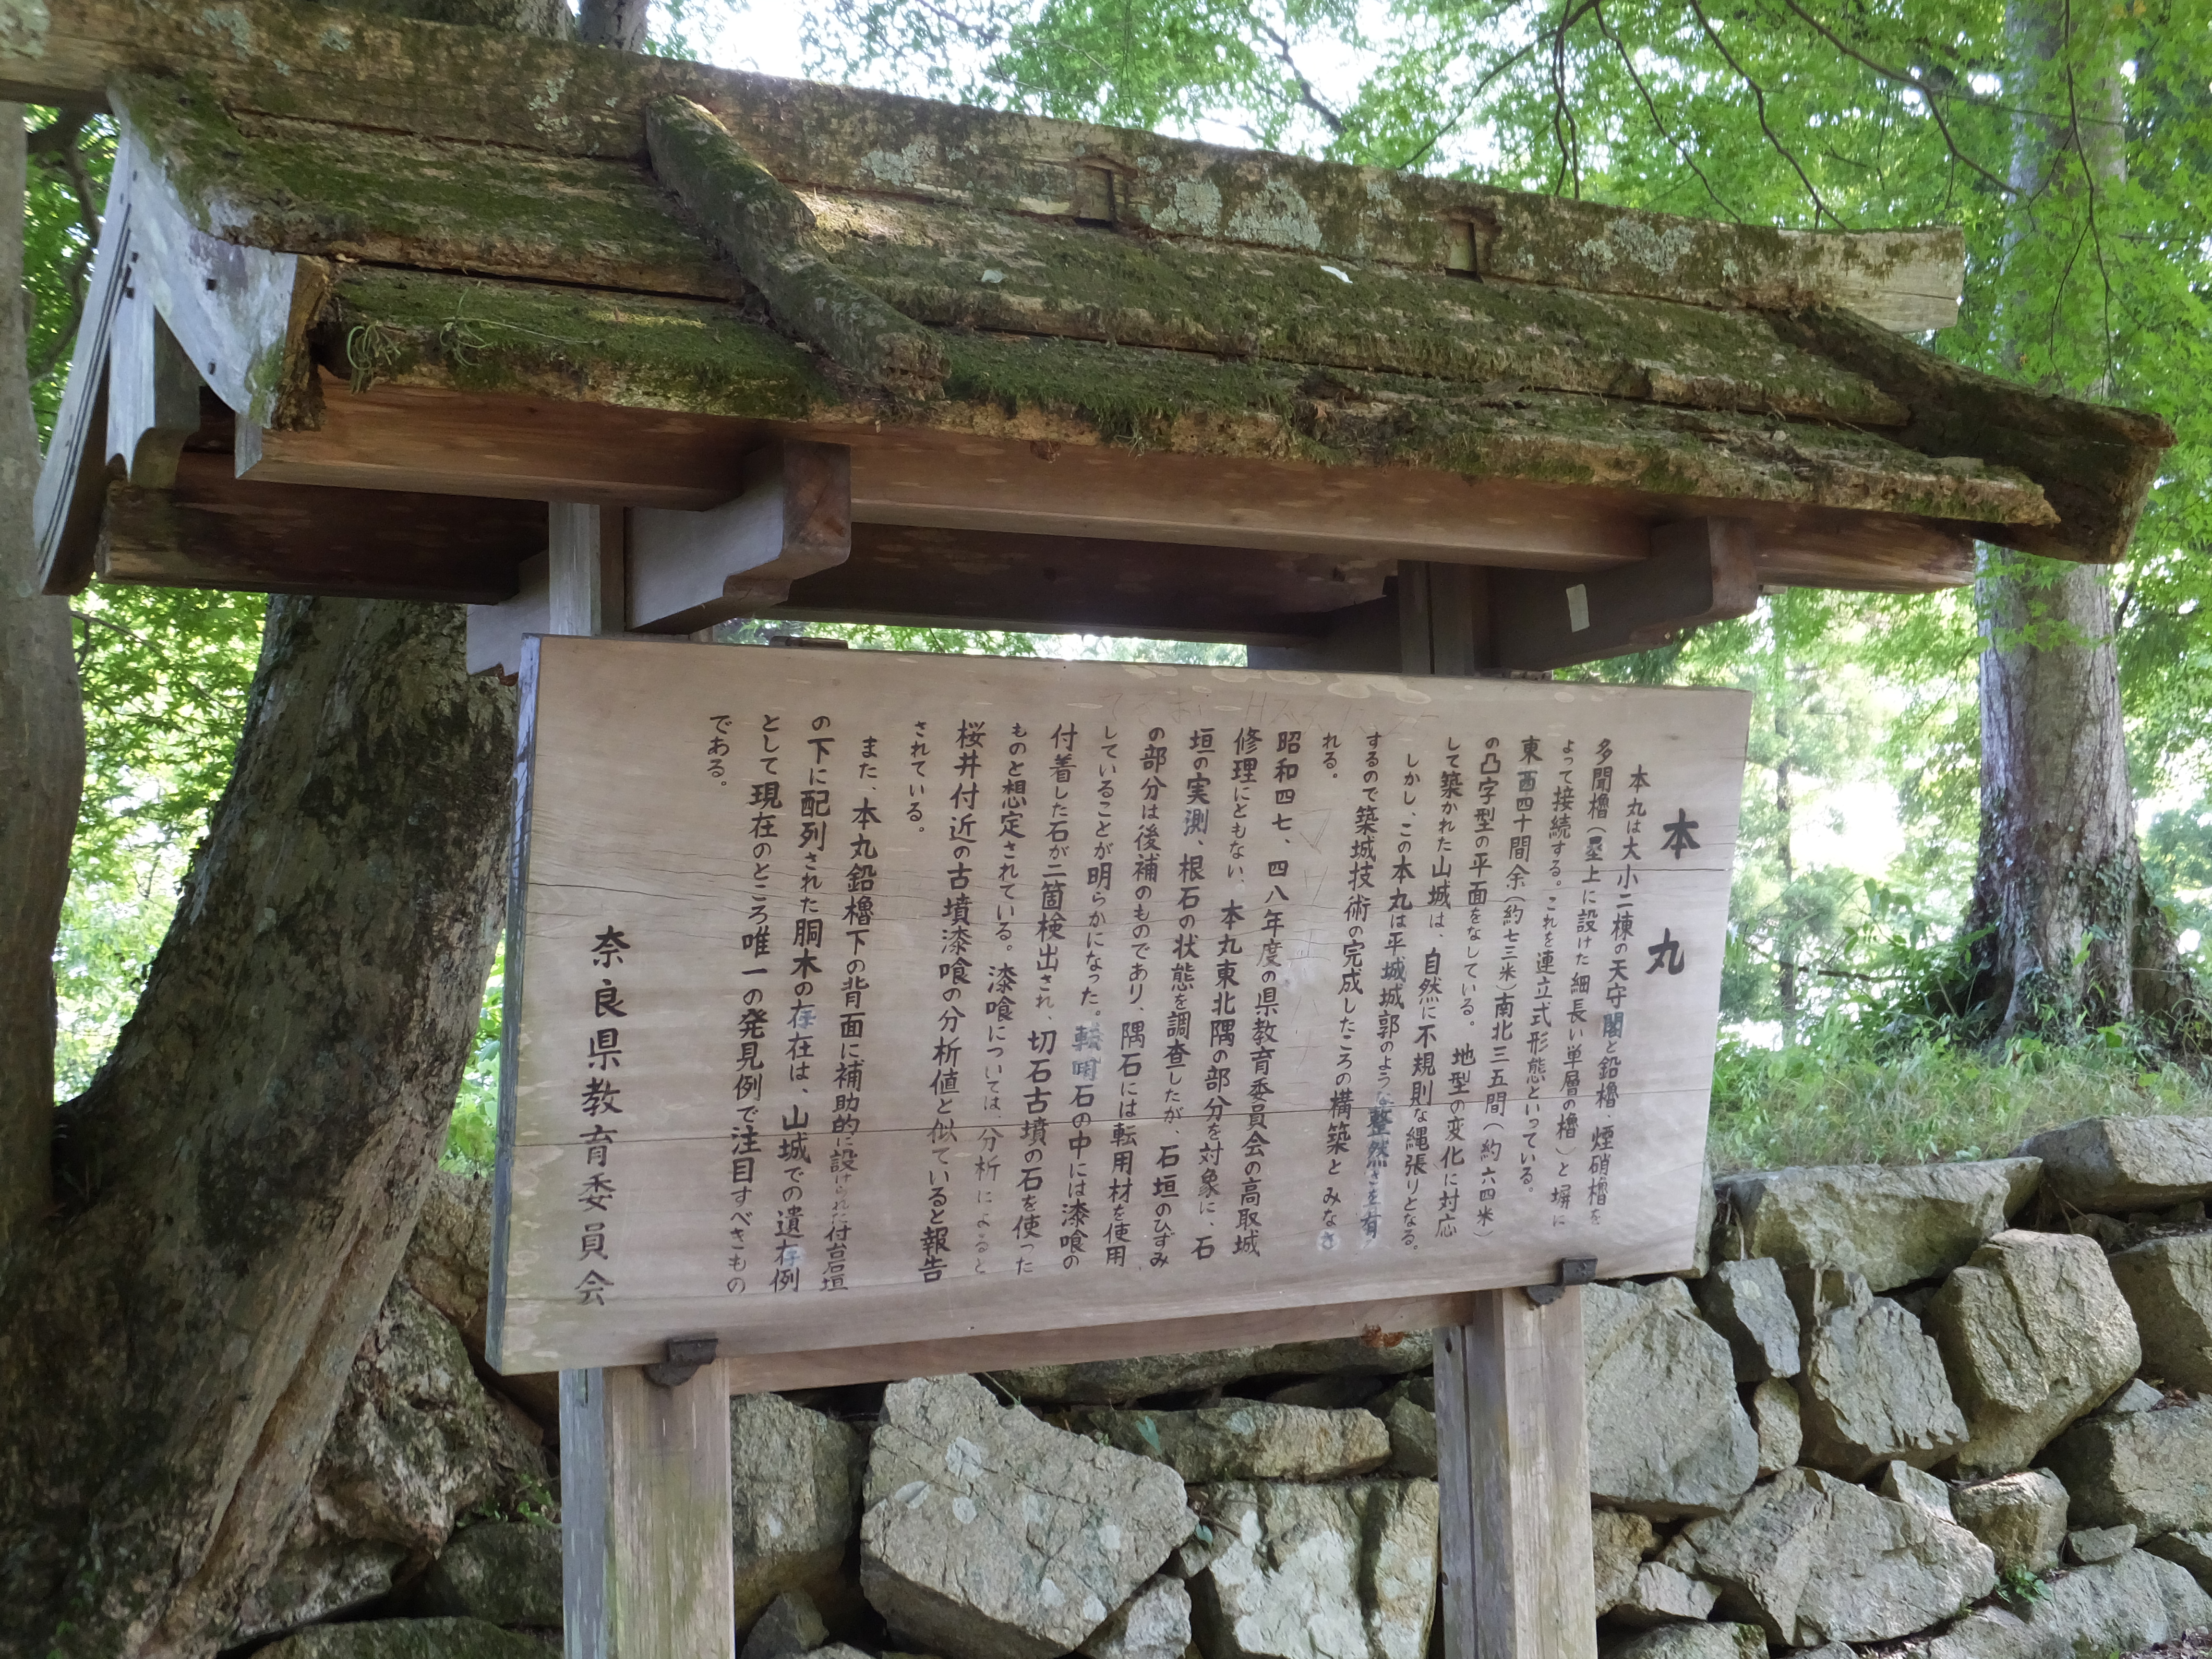 本丸
本丸は大小二棟の天守閣と鉛櫓・煙硝櫓を
多聞櫓(塁上に設けた細長い単層の櫓)と塀に
よって接続する。これを連立式形態といっている。
東西四十間余(約七三米)南北三五間(約六四米)
の凸字型の平面をなしている。地型の変化に対応
して築かれた山城は、自然に不規則な縄張りとなる。
しかし、この本丸は平城城郭のような整然さを有
するので築城技術の完成したころの構築とみなさ
れる。
昭和四七、四八年度の県教育委員会の高取城
修理にともない、本丸東北隅の部分を対象に、石
垣の実測、根石の状態を調査したが、石垣のひずみ
の部分は後補のものであり、隅石には転用材を使用
していることが明らかになった。転用石の中には漆喰の
付着した石が二箇検出され、切石古墳の石を使った
ものと想定されている。漆喰については、分析によると
桜井付近の古墳漆喰の分析値と似ていると報告
されている。
また、本丸鉛櫓下の背面に補助的に設けられた付台石垣
の下に配列された胴木の存在は、山城での遺存例
として現在のところ唯一の発見例で注目すべきもの
である。
奈良県教育委員会